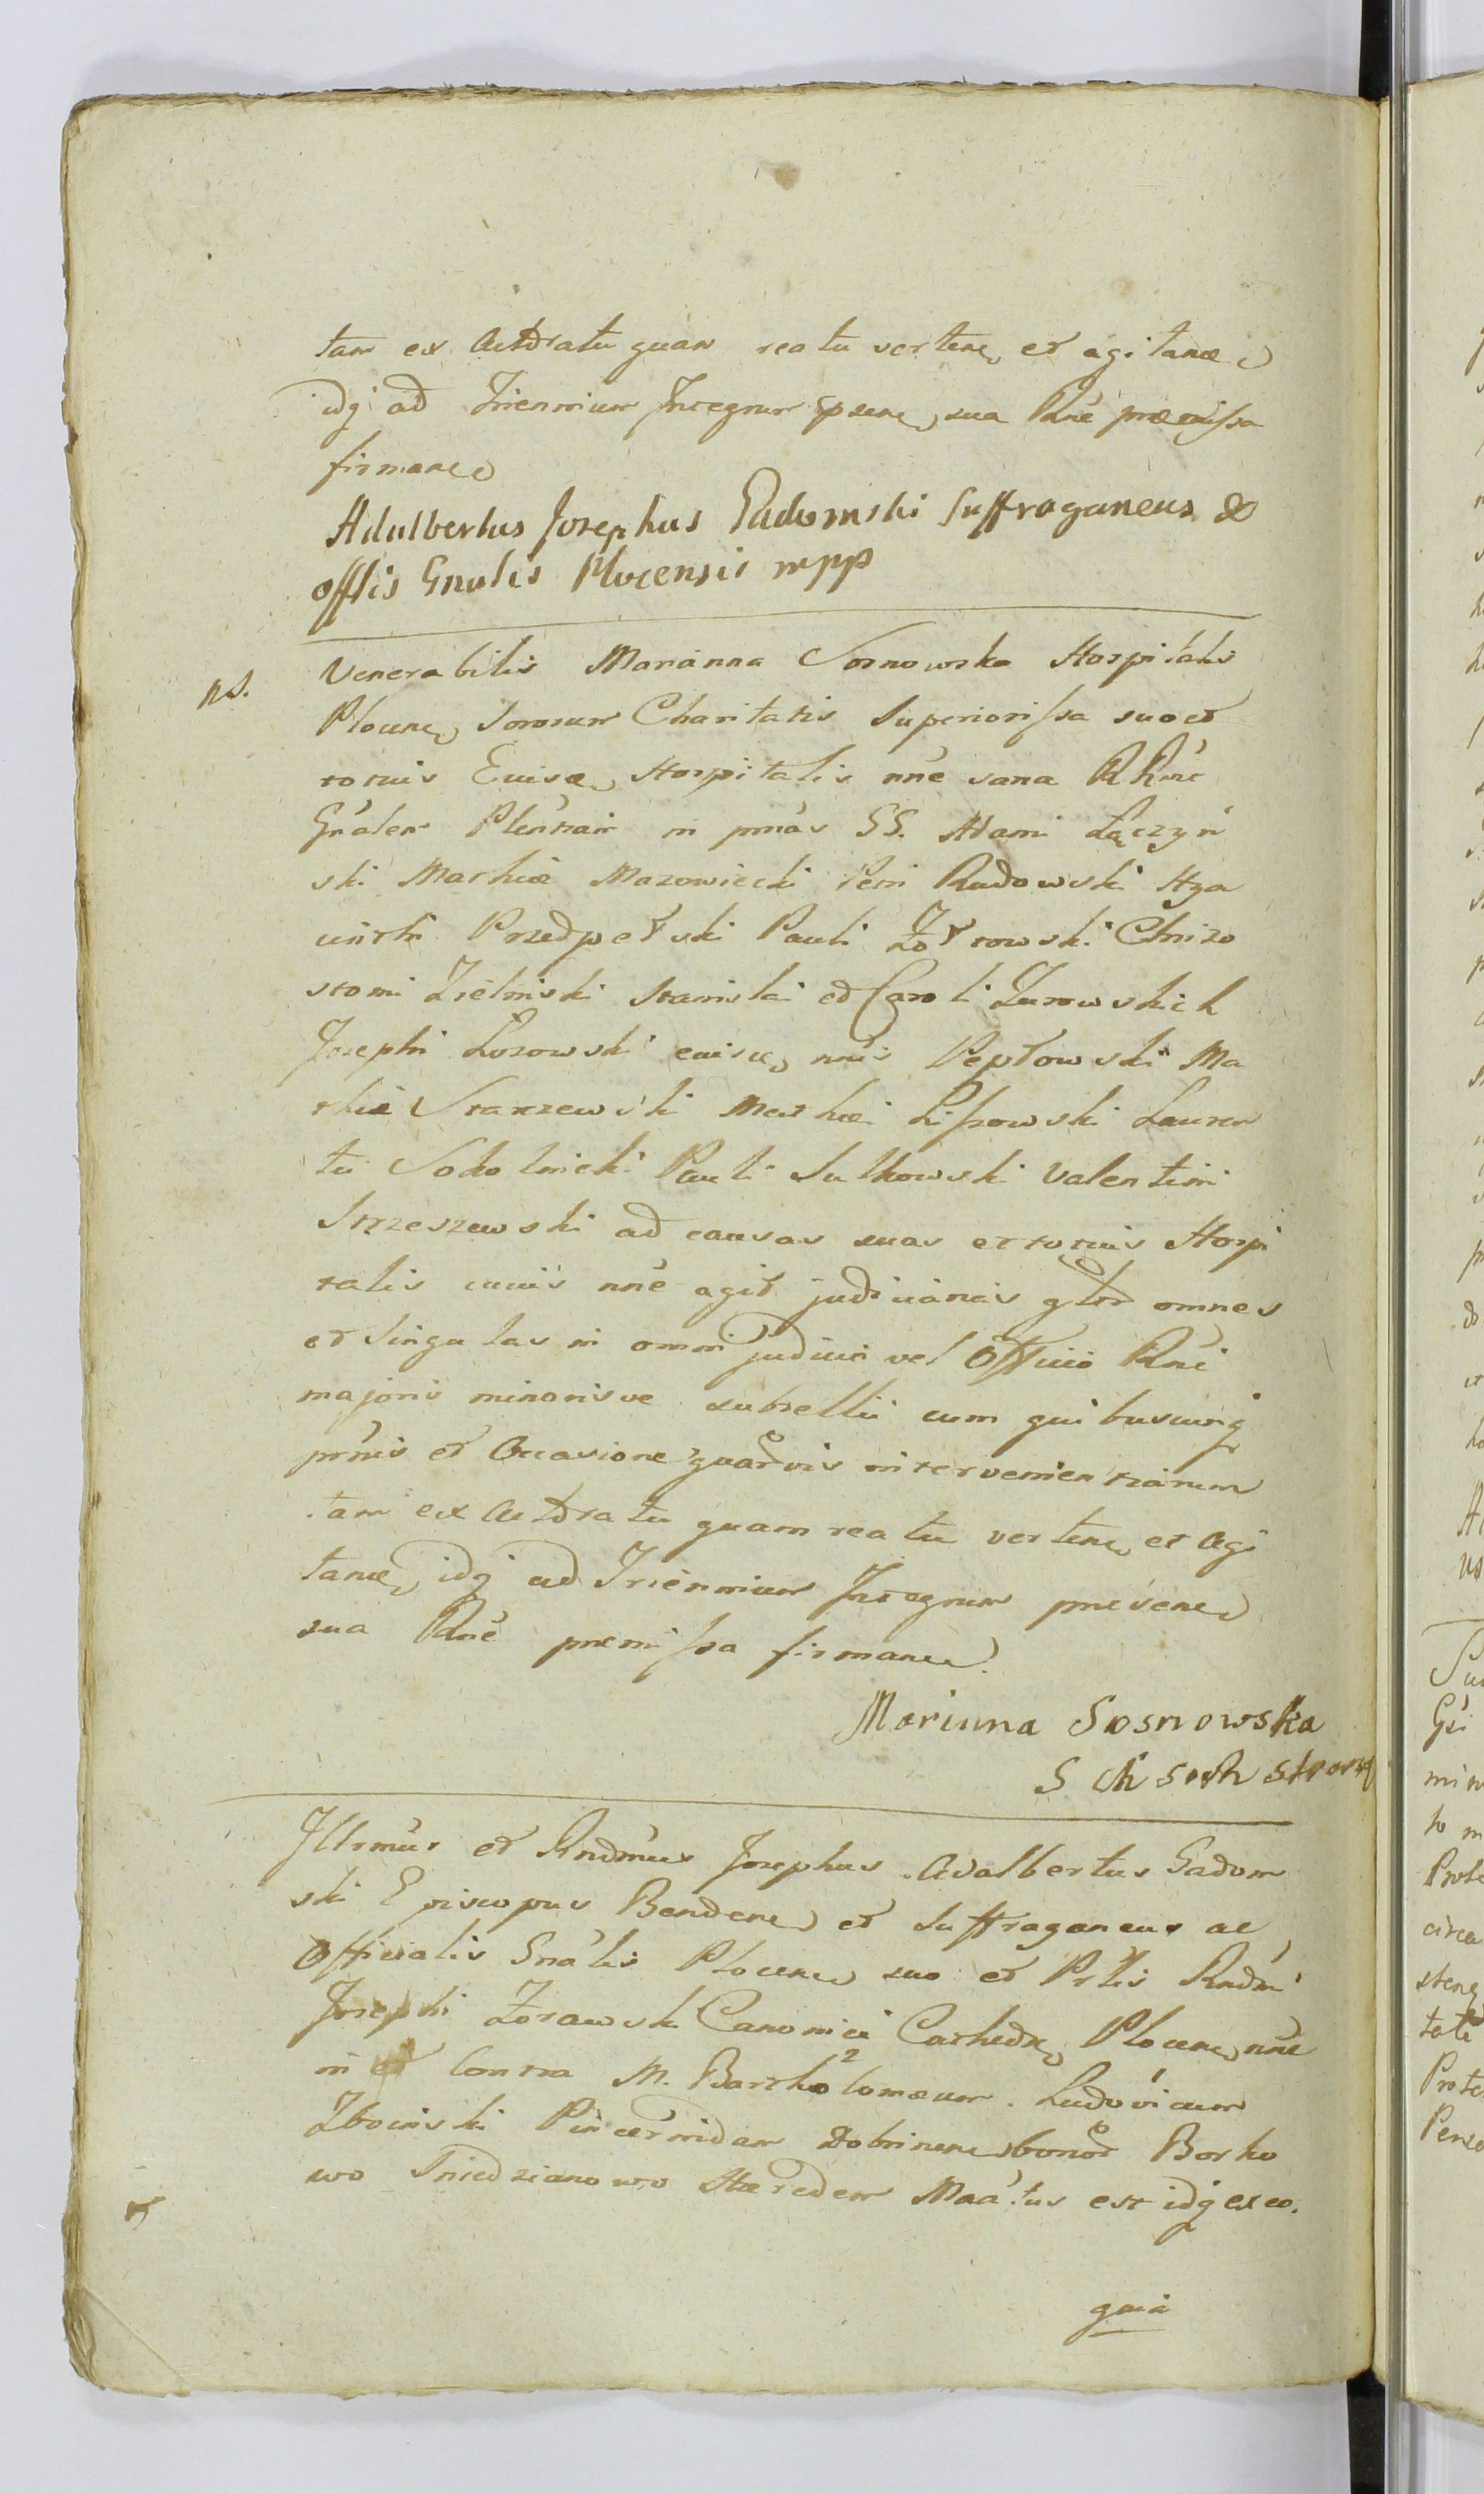 tam ex Actoratu quam reatu verten. et agitanæ
idq ad Triennium Integrum psene, sua Pdne præmissa
firmane
Adalbertus Josephus Gadomski Suffraganeus &
offlis Gnalis Plocensis mpp
ns. Venerabilis Marianna Sosnowska Hospitalis
Plocens Sororum Charitatis Superiorissa suo et
totius Ejusd Hospitalis nne
Gnalem Plenrar in pnas GG. Adami Łączyń
ski Mathiæ Mazowiecki Petri Radowski Hya
cinthi Przedpełski Pauli Żółtowski Chrizo
stomi Zieliński Stanislai et Caroli Żurowskich
Josephi Lozowski ejusd nnis Pepłowski Ma
thiæ Staszewski Mathei Lissowski Lauren
tii Sokolnicki Pauli Sulkowski Valentini
Strzeszewski ad causas suas et totius Hospi
talis cuius nne agit judiciarias gltr omnes
et Singulas in omni judicio vel Officio Rni
majoris minorisve subsellii cum quibuscunq
prnis et Occasione quarvis intervenientiarum
tam ex Actoratu quam reatu verten. et Agi
tanæ, idq ad Triennium Integrum
sua Pdne præmissa firmane.
Marianna Sosnowska
S
Illrmus et Rndmus Josephus Adalbertus Gadom
ski Episcopus Bendene et Suffraganeus ac
Officialis Gnalis Plocene suo et Prlis Rndmi
Josephi Zorawski Canonici Cathedr Plocene, nne
in et Contra M. Bartholomæum 2 Ludovicum
Zboinski Pincernidam Dobrinene bonor Borko
wo Sniedzianowo Hæredem Maatus est idq ex eo.
quia